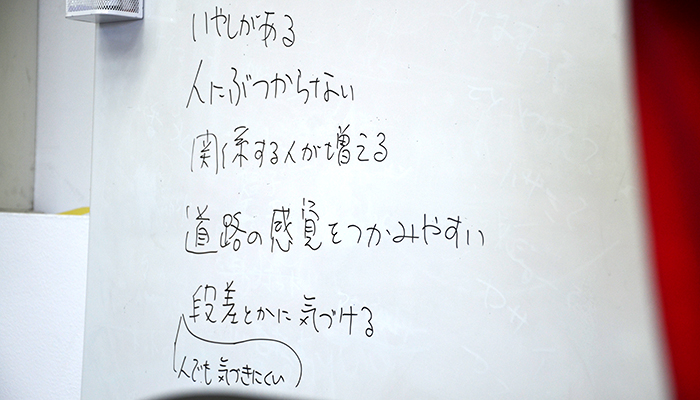 いやしがある
人にぶつからない
関係する人が増える
道路の感覚をつかみやすい
段差とかに気づける
人でも気づきにくい